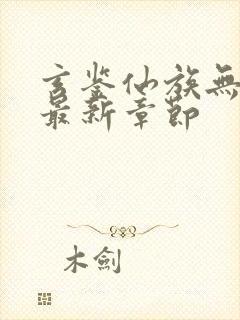 玄鉴仙族無
最新章節
木劍